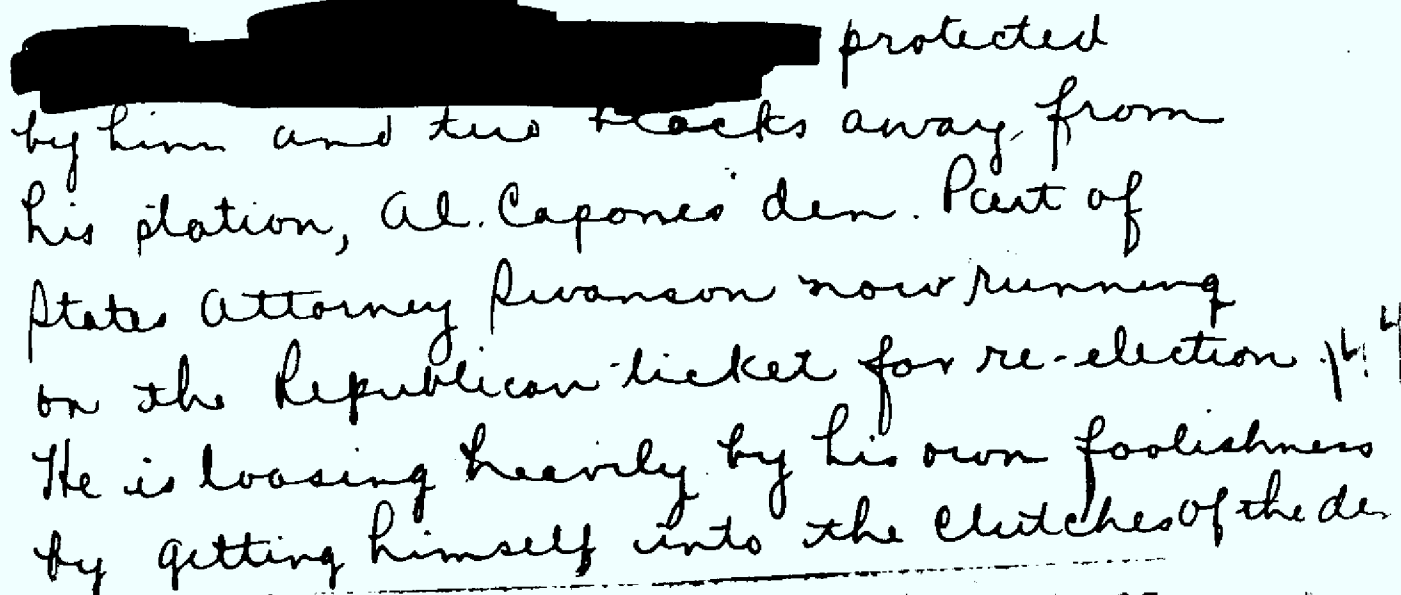 protected
by him and two blocks away from
his station, Al. Capone's den. Part of
States Attorney Swanson now running
on the Republican ticket for re-election
He is loosing heavily by his own foolishness
by getting himself into the clutches of the